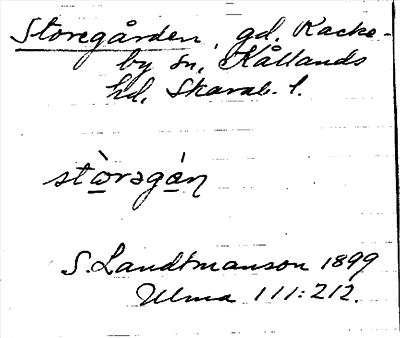 Storegården, gd. Kacke-
by sn, Kållands
hd, Skarab. l.
stò̱rəgá̱n
S. Landtmanson 1899
Ulma 111:212.